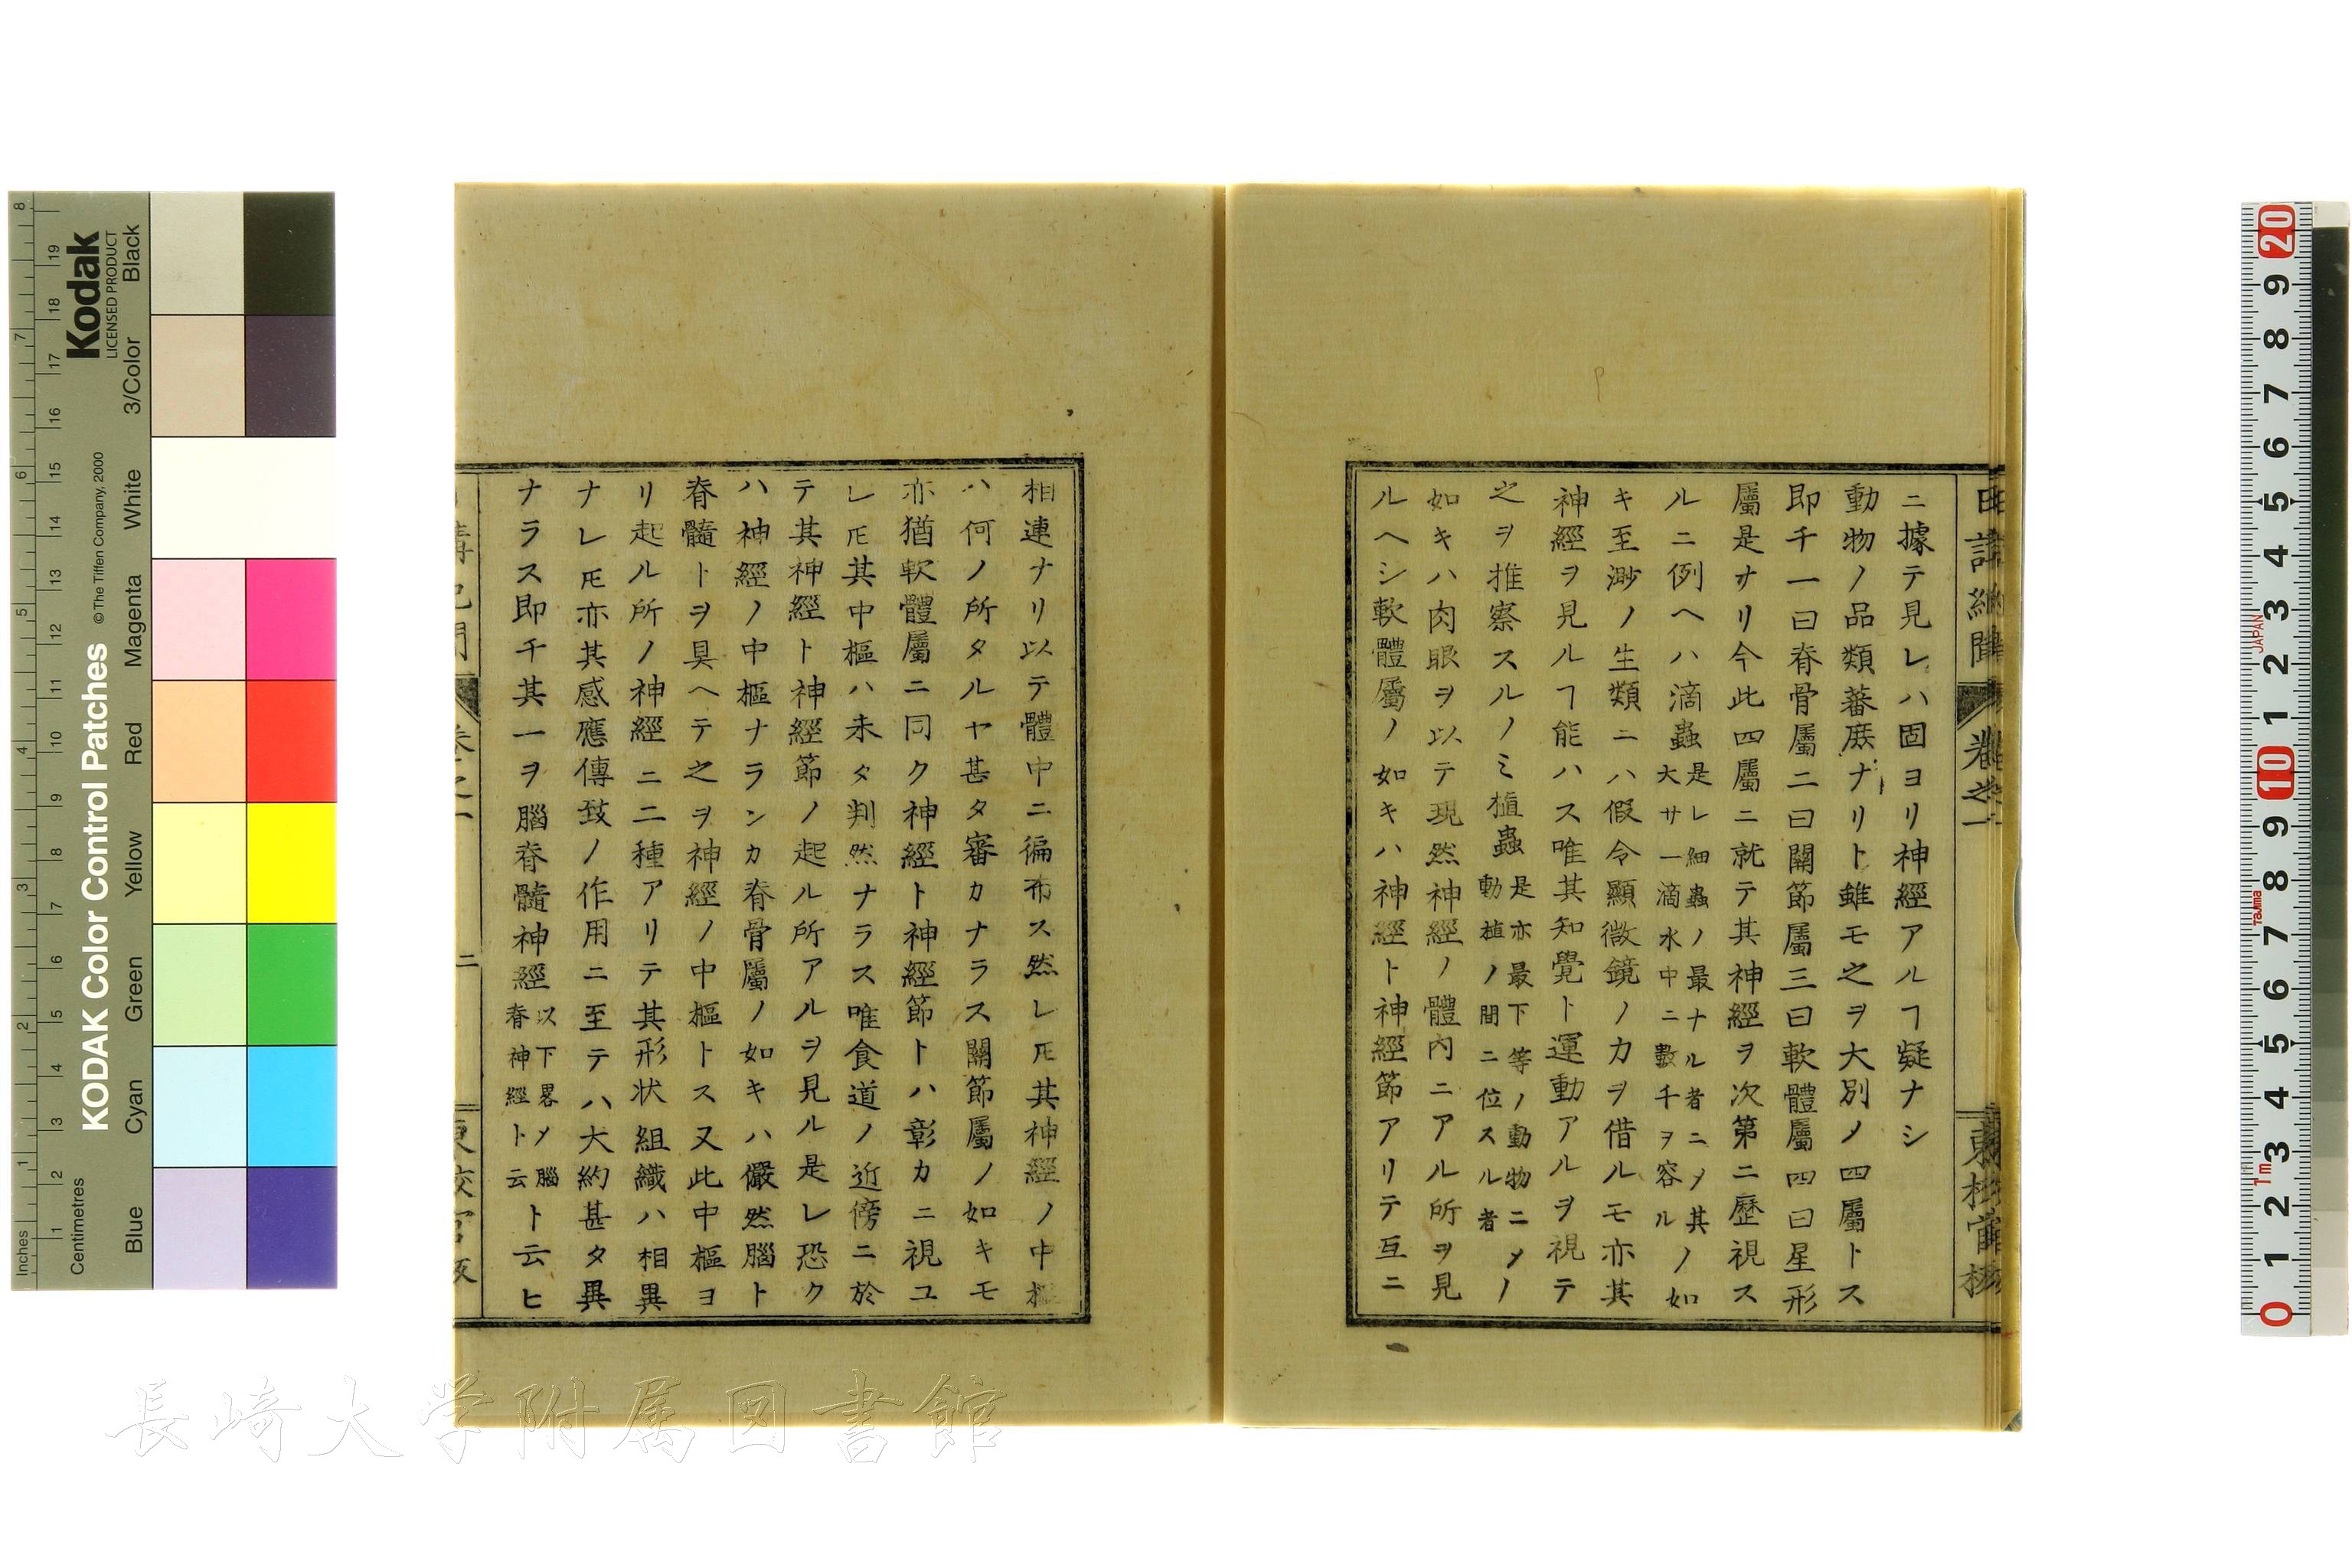 ニ據テ見レハ固ヨリ神經アルヿ疑ナシ
動物ノ品類蕃庶ナリト雖モ之ヲ大別ノ四屬トス
即チ一曰脊骨屬二曰關節屬三曰軟體屬四曰星形
屬是ナリ今此四屬ニ就テ其神經ヲ次第ニ歷視ス
ルニ例ヘハ滴蟲是レ細蟲ノ最ナル者ニノ其大サ一滴水中ニ數千ヲ容ルノ如
キ至渺ノ生類ニハ假令顯微鏡ノカヲ借ルモ亦其
神經ヲ見ルヿ能ハス唯其知覺ト運動アルヲ視テ
之ヲ推察スルノミ植蟲是亦最下等ノ動物ニノ動植ノ間ニ位スル者ノ
如キハ肉眼ヲ以テ現然神經ノ體內ニアル所ヲ見
ルヘシ軟體屬ノ如キハ神經ト神經節アリテ互ニ
相連ナリ以テ體中ニ徧布ス然レ𪜈其神經ノ中樞
ハ何ノ所タルヤ甚タ審カナラス關節屬ノ如キモ
亦猶軟體屬ニ同ク神經ト神經節トハ彰カニ視ユ
レ𪜈其中樞ハ未タ判然ナラス唯食道ノ近傍ニ於
テ其神經ト神經節ノ起ル所アルヲ見ル是レ恐ク
ハ神經ノ中樞ナランカ脊骨屬ノ如キハ儼然腦ト
脊髓トヲ具ヘテ之ヲ神經ノ中樞トス又此中樞ヨ
リ起ル所ノ神經ニ二種アリテ其形状組織ハ相異
ナレ𪜈亦其感應傳致ノ作用ニ至テハ大約甚タ異
ナラス即チ其一ヲ腦脊髓神經以下畧ノ腦脊神經ト云ト云ヒ
二
KODAK Color Control Patches
© The Tiffen Company, 2000
Kodak
LICENSED PRODUCT
Inches
Centimetres
Blue
Cyan
Green
Yellow
Red
Magenta
White
3/Color
Black
長崎大学附属図書館